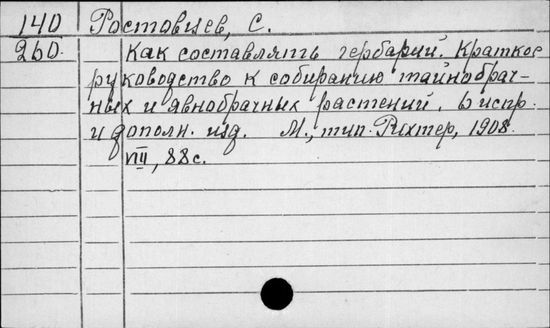 140 Ростовцев, С.
260. Как составлять гербарий. Краткое
руководство к собиранию тайнобрач-
ных и явнобрачных растений. 6 испр.
и дополн. изд. М., тип. Рихтер, 1908.
VIII, 88 с.